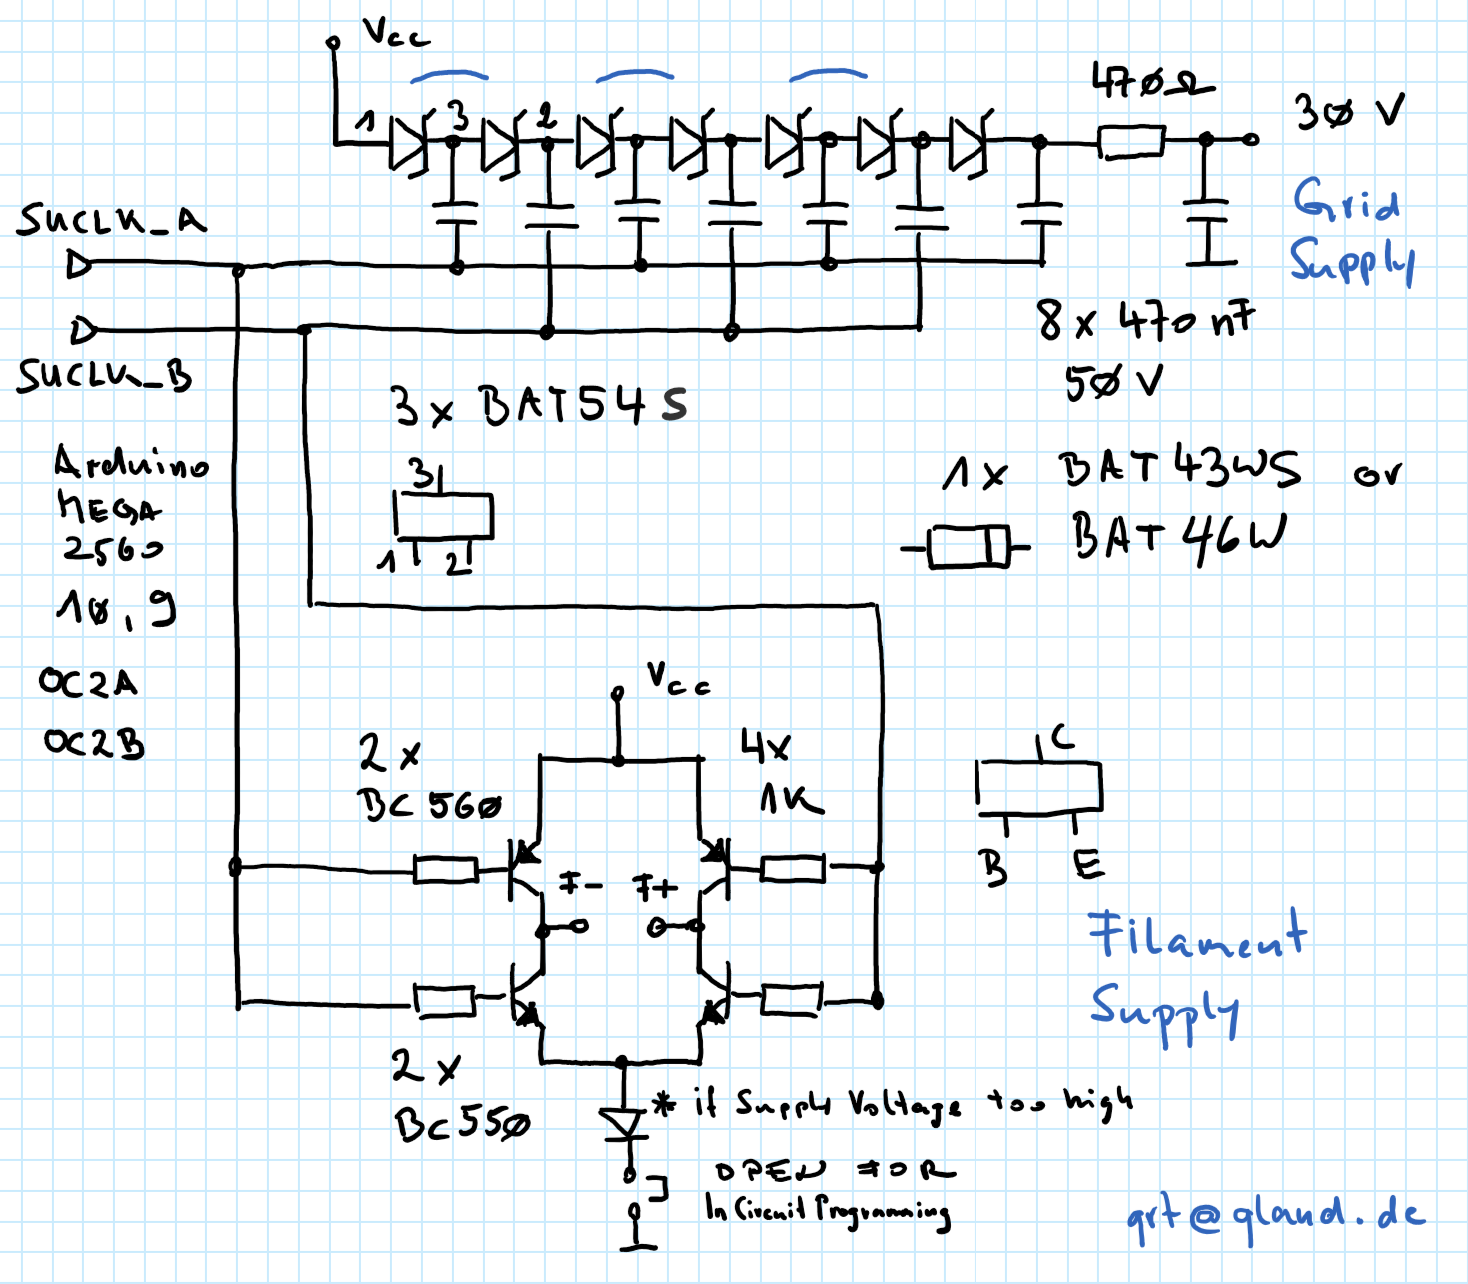 Vcc
470Ω
30 V
1 3 2
SUCLK_A
Grid
Supply
8 x 470 nF
50 V
SUCLK_B
3 x BAT54S
Arduino
MEGA
2560
3
1 2
1x BAT43WS or
BAT46W
10, 9
OC2A
OC2B
Vcc
2 x
BC 560
4x
1K
C
B E
F- F+
Filament
Supply
2 x
BC 550
* if Supply Voltage too high
OPEN FOR
In Circuit Programming
grt@qland.de